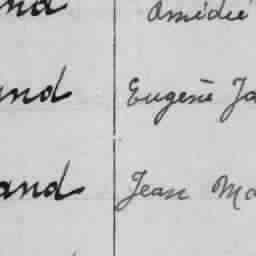 and Amédée
and Eugène Ja
and Jean Ma